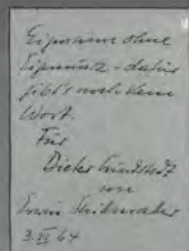 Eigensinn ohne
Eigennutz - dafür
gibt's noch kein
Wort.
Für
Dieter
von
Erwin
3. VI 64